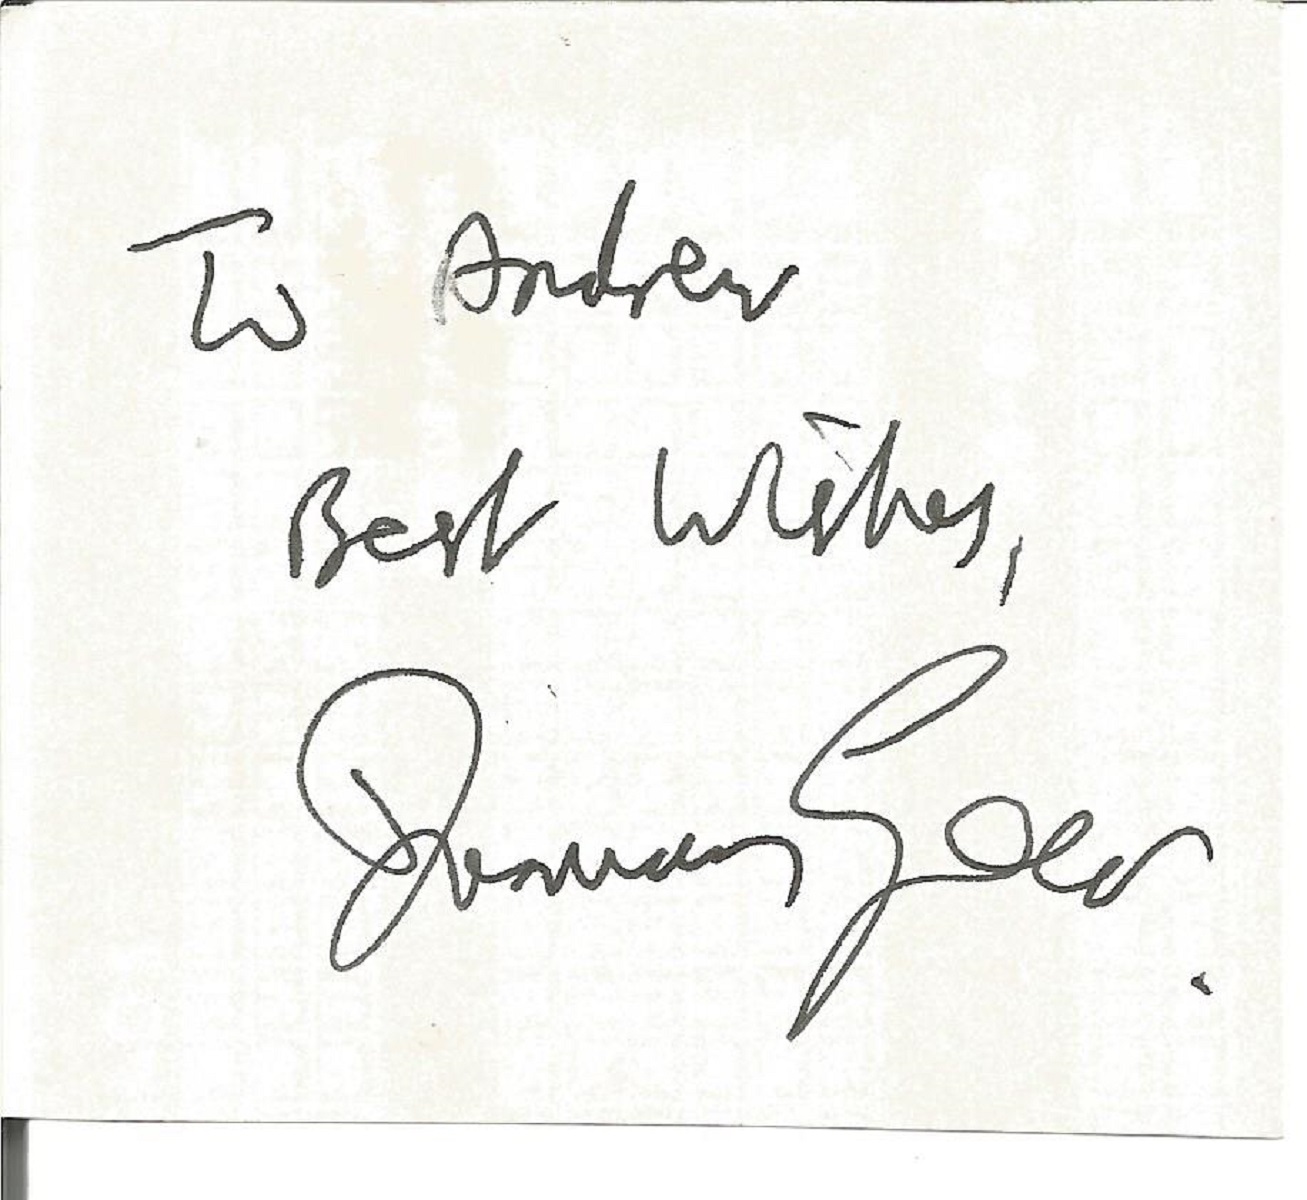 To Andrew
Best Wishes,